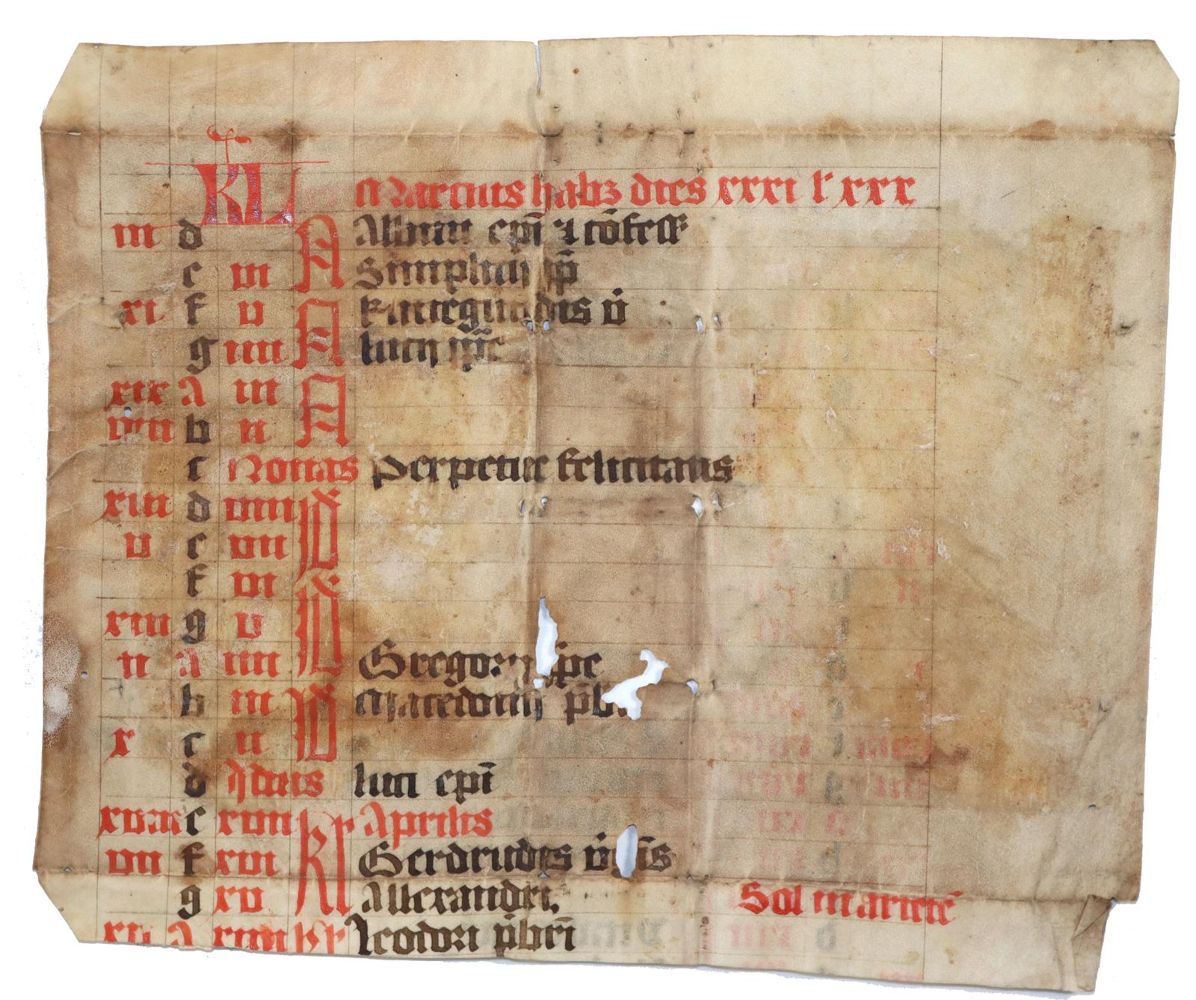 KL Marcius habz dies xxxi l' xxx
iii d A Albini epi et cofess
e vi A Simplicii pp
xi f v A Kunegundis v
g iiii A lucii ppe
xix A iii A
viii b ii A
c Nonas Perpetue felicitatis
xvi d viii
v e vii
f vi
xiii g v
ii A iiii Gregorii ppe
b iii Macedonii pbri
x c ii
d Idus luci epi
xviii e xvii kl Aprilis
vii f xvi Gerdrudis vgis
g xv kl Allexandri.
xv A xiiii kl Teodori pbri Sol in ariete